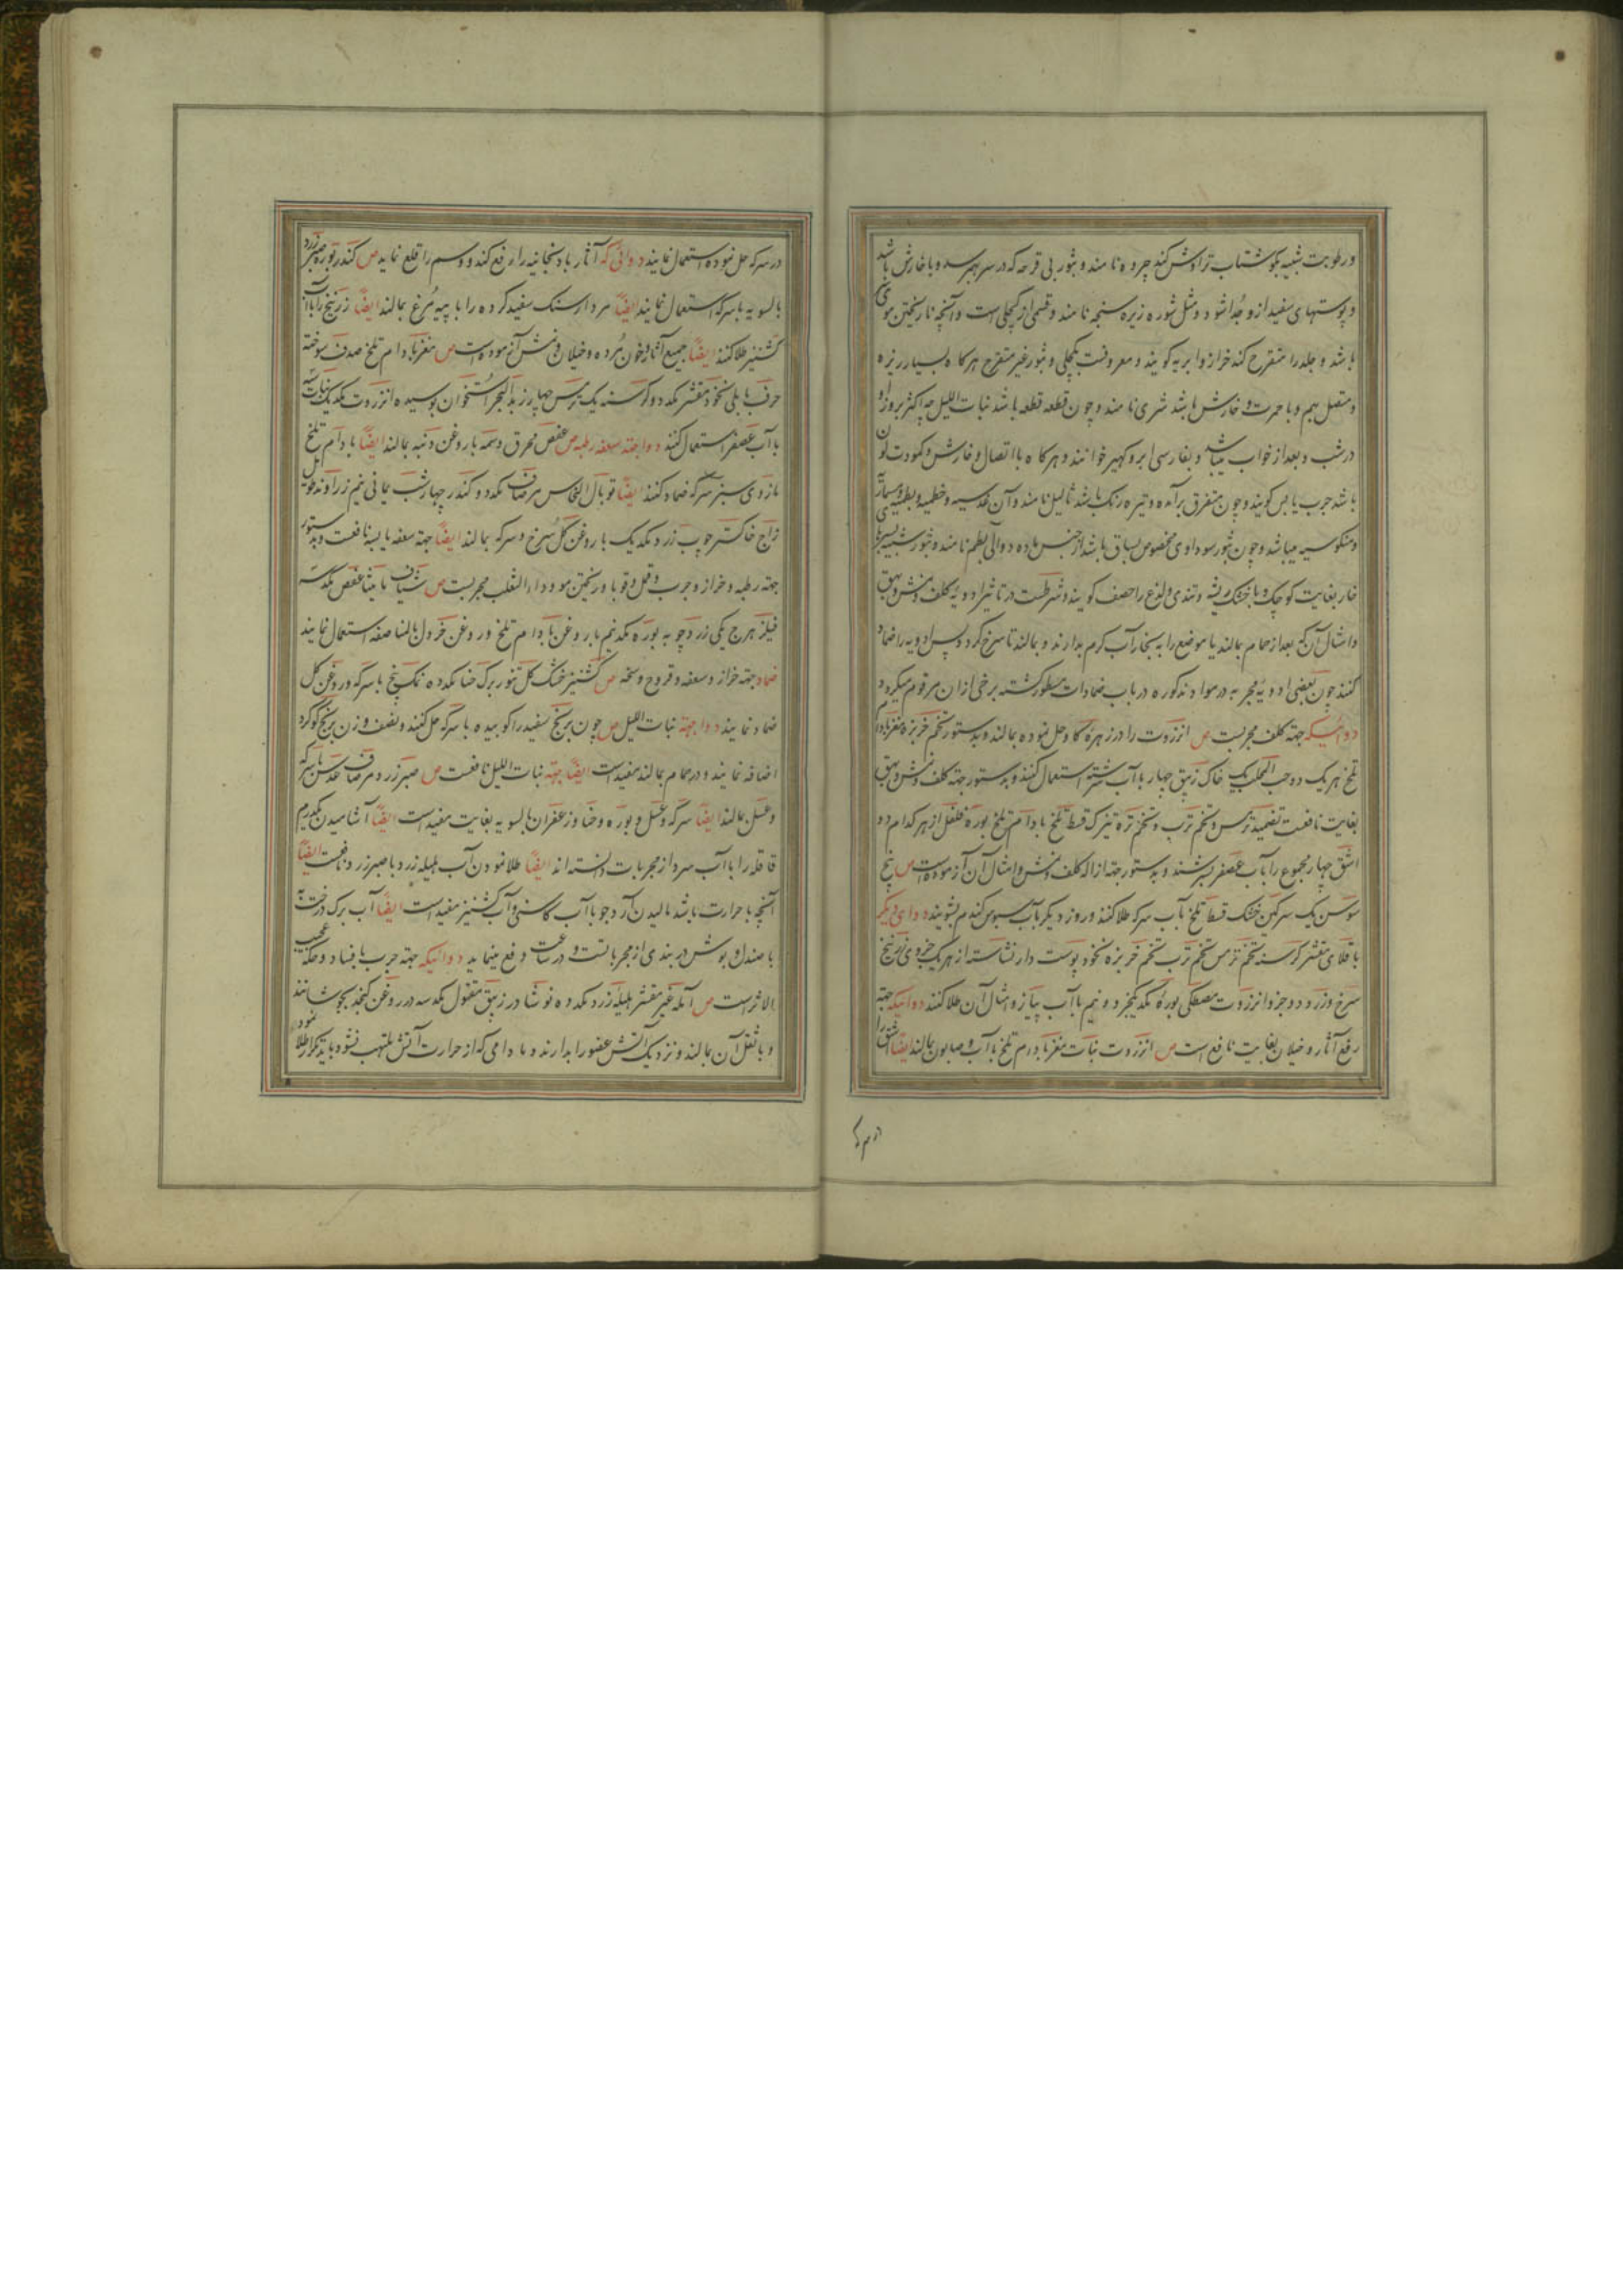 و رطوبت شبیه بکوشتاب تراوش کند چرده نامند و بثور بی قرحه که در سر بهم رسد و با خارش باشد
و پوستهای سفید از و جدا شود و مثل شوره زیره سنجه نامند و قسمی از کچلی است و آنچه با ریختن موی
باشد و جلد را متقرح کند خراز و ابریه کویند و معروفست بکچلی و بثور غیر متقرح هر کاه بسیار ریزه
و متصل بهم و با حمرت و خارش باشد شری نامند و چون قطعه قطعه باشد نبات اللیل چه اکثر بروز او
در شب و بعد از خواب میباشد و بفارسی ابرو کهیر خوانند و هر کاه با اتصال و خارش و کمودت لون
باشد جرب یابس کویند و چون متفرق برآمده و تیره رنک باشد ثالیل نامند و آن عدسیه و خطمیه و بطمیه و مسماری
و منکوسیه میباشد و چون بثور سوداوی مخصوص بساق باشد از جنس ماده دوالی بطم نامند و بثور شبیه بسر
خار بغایت کوچک و با خشک ریشه و تندی و لذع را حصف کویند و شرطست در تاثیر ادویه کلف و نمش و بهق
و امثال آن که بعد از حمام بمالند یا موضع را به بخار آب کرم بدارند و بمالند تا سرخ کردد پس ادویه را ضماد
کنند چون بعضی ادویه مجربه در مواد مذکوره در باب ضمادات مسطور کشته برخی از ان مرقوم میکردد
دوائیکه جهته کلف مجربست ص انزروت را در زهره کاو حل نموده بمالند و بدستور تخم خربزه مغز بادام
تلخ هر یک ده حب المحلب یک خاک زیبق چهار با آب سرشته استعمال کنند و بدستور جهته کلف و نمش و بهق
بغایت نافعست تضمید ترمس و تخم ترب و تخم تره تیزک قسط تلخ بادام تلخ بوره فلفل از هر کدام دو
اشق چهار مجموع را بآب عصفر بسرشند و بدستور جهته ازاله کلف و نمش و امثال آن آزموده است ص بیخ
سوسن یک سرکین خشک قسط تلخ بآب سرکه طلا کنند و روز دیکر بآب سبوس کندم بشویند دوای دیکر
باقلای مقشر کرسنه تخم ترمس تخم ترب تخم خربزه نخود پوست دار نشاسته از هر یک جزوی زرنیخ
سرخ و زرد دو جزو انزروت مصطکی بوره نمک یکجزو و نیم با آب پیاز و امثال آن طلا کنند دوائیکه جهته
رفع آثار و خیلان بغایت نافع است ص انزروت نبات مغز بادام تلخ با آب و صابون بمالند ایضا اشق را
در سرکه حل نموده استعمال نمایند دوائی که آثار بادنجانیه را رفع کند و وسم را قلع نماید ص کندر بوره صبر زرد
بالسویه با سرکه استعمال نمایند ایضا مرداسنک سفید کرده را با پیه مرغ بمالند ایضا زرنیخ را با آب
کشنیز طلا کنند ایضا جمیع آثار و خون مرده و خیلان و نمش آزموده است ص مغز بادام تلخ صدف سوخته
خرف باقلی نخود مقشر یکدو کرسنه یک ترمس چهار زبد البحر استخوان پوسیده انزروت یکیک نبات سه
با آب عصفر استعمال کنند دوا جهته سعفه رطبه ص عفص محرق وسمه با روغن دنبه بمالند ایضا بادام تلخ
مازوی سبز بسرکه ضماد کنند ایضا توبال النحاس مر صاف یکدو کندر چهار شب یمانی نیم زراوند طویل
زاج خاکستر چوب زرد یکیک با روغن کل سرخ و سرکه بمالند ایضا جهته سعفه یابسه نافعست و بدستور
جهته رطبه و خراز و جرب و قمل و قوبا و ریختن مو و داء الثعلب مجربست ص شیاف مامیثا عفص یکسه
فیلزهرج یکی زردچوبه بوره یکنیم با روغن بادام تلخ و روغن خردل بالمناصفه استعمال نمایند
ضماد جهته خراز و سعفه و قروح و سخه ص کشنیز خشک کل تنور برک حنا یکده نمک پنج با سرکه و روغن کل
ضماد نمایند دوا جهته نبات اللیل ص چون برنج سفید را کوبیده با سرکه حل کنند و نصف وزن برنج کوکرد
اضافه نمایند و در حمام بمالند مفید است ایضا جهته نبات اللیل نافعست ص صبر زرد مر صاف عدس با سرکه
و عسل بمالند ایضا سرکه و عسل و بوره و حنا و زعفران بالسویه بغایت مفید است ایضا آشامیدن یکدرم
قاقله را با آب سرد از مجربات دانسته اند ایضا طلا نمودن آب هلیله زرد با صبر زرد نافعست ایضا
آنچه با حرارت باشد مالیدن آرد جو با آب کاسنی و آب کشنیز مفید است ایضا آب برک درخت به
با صندل و بوش دربندی از مجرباتست و در ساعت دفع مینماید دوائیکه جهته جرب با فساد و حکه عجیب
الاثرست ص آمله غیر مقشر هلیله زرد یکده نوشادر زیبق مقتول یکسه در روغن کنجد بجوشانند
و با ثفل آن بمالند و نزدیک آتش عضو را بدارند و مادامی که از حرارت آتش ملتهب نشود باید تکرار طلا نمود